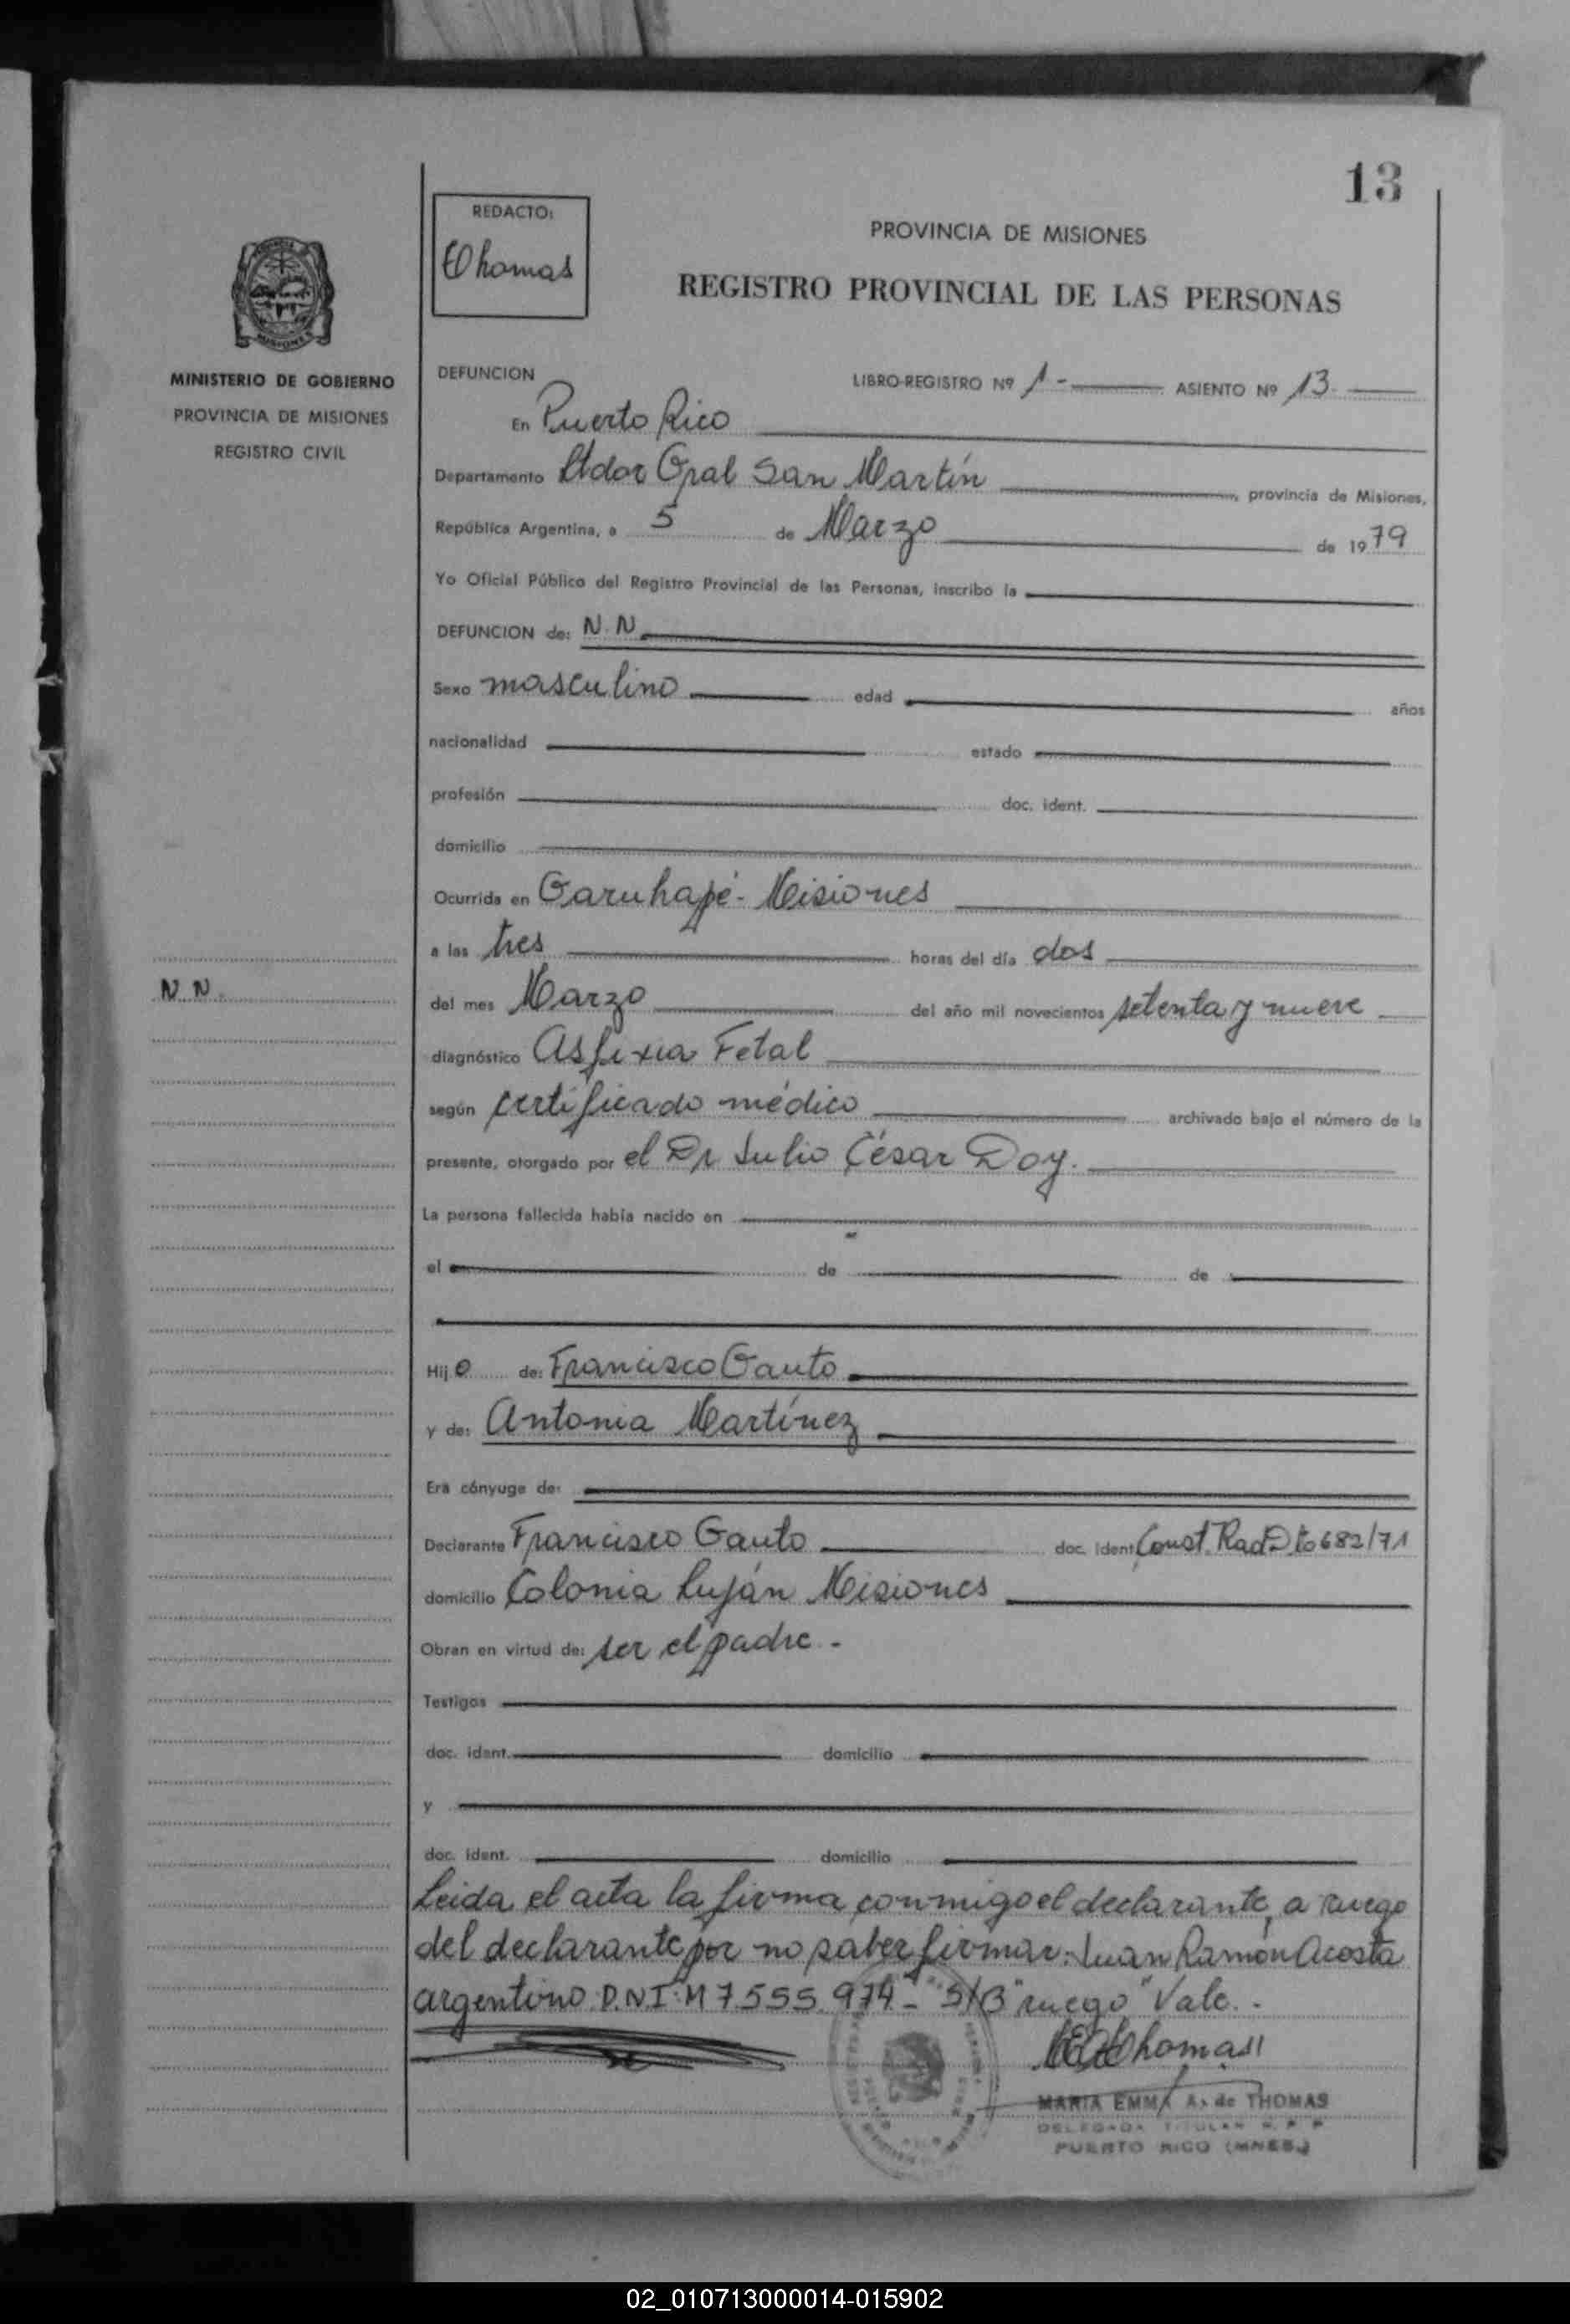 13
REDACTO:
Thomas
PROVINCIA DE MISIONES
REGISTRO PROVINCIAL DE LAS PERSONAS
MINISTERIO DE GOBIERNO
PROVINCIA DE MISIONES
REGISTRO CIVIL
DEFUNCION
LIBRO-REGISTRO Nº 1- ASIENTO Nº 13
En Puerto Rico
Departamento Ltdor Gral San Martín, provincia de Misiones,
República Argentina, a 5 de Marzo de 1979
Yo Oficial Público del Registro Provincial de las Personas, inscribo la
DEFUNCION de: N.N
Sexo masculino edad años
nacionalidad estado
profesión doc. ident.
domicilio
Ocurrida en Garuhapé- Misiones
a las tres horas del día dos
N N.
del mes Marzo del año mil novecientos setenta y nueve
diagnóstico Asfixia Fetal
según certificado médico archivado bajo el número de la
presente, otorgado por el Dr Julio César Doy.
La persona fallecida había nacido en
el de de
Hijo de: Francisco Gauto
y de: Antonia Martínez
Era cónyuge de:
Declarante Francisco Gauto doc. ident. Const. Rad Dto 682/71
domicilio Colonia Luján Misiones
Obran en virtud de: ser el padre.-
Testigos
doc. ident. domicilio
y
doc. ident. domicilio
Leida el acta la firma conmigo el declarante, a ruego
del declarante por no saber firmar: Juan Ramón Acosta
argentino D.N.I. M 7.555.974- S/B "ruego" Vale.-
Thomas
MARIA EMMA A. de THOMAS
DELEGADA TITULAR R. P. P
PUERTO RICO (MNES.)
02_010713000014-015902